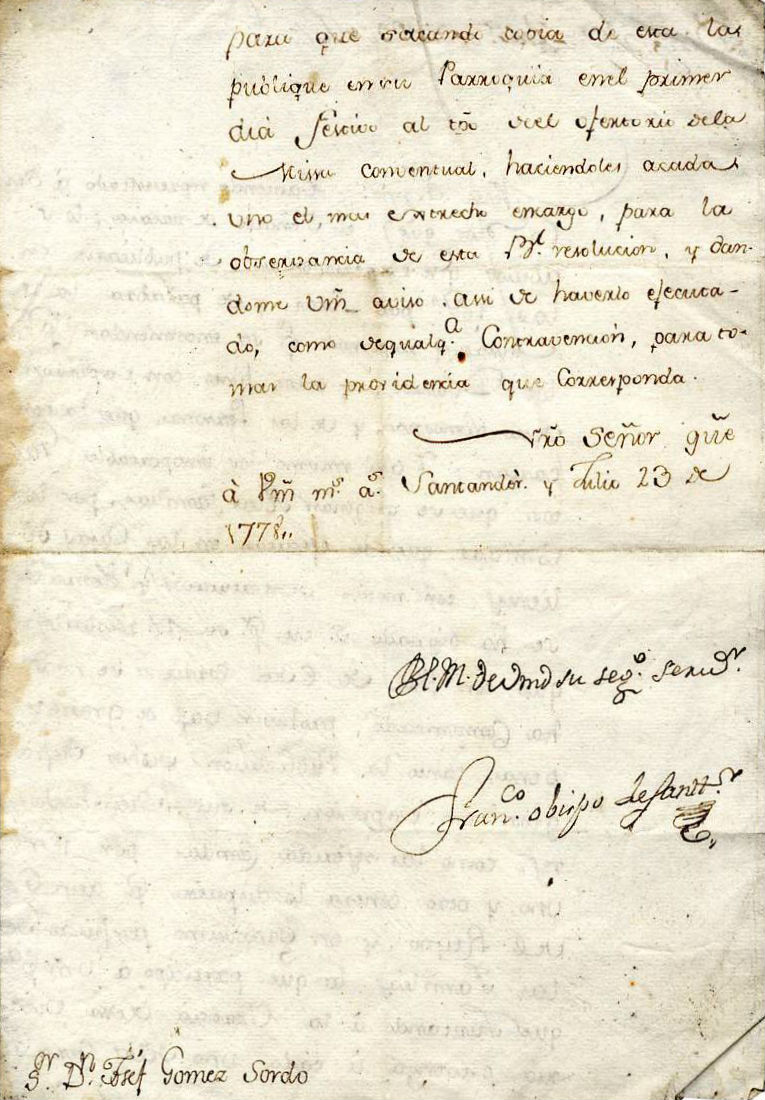 para que sacando copia de esta las
publique en su Parroquia en el primer
dia festivo al tpõ del ofertorio dela
Missa Conventual, haciendoles acada
uno el mas estrecho encargo, para la
observancia de esta Rl. resolucion, y dan-
dome Vm̃ aviso assi de haverlo ejecuta-
do, como dequalqa. Contravencion, para to-
mar la providencia que Corresponda.
Nrõ Señor güe
à Vm̃ ms. as. Santander. y Julio 23 de
1778..
Bl. M. de Vmd su sego. servdr.
Franco. obispo de Santtr.
Sr. Dn. Josef Gomez Sordo